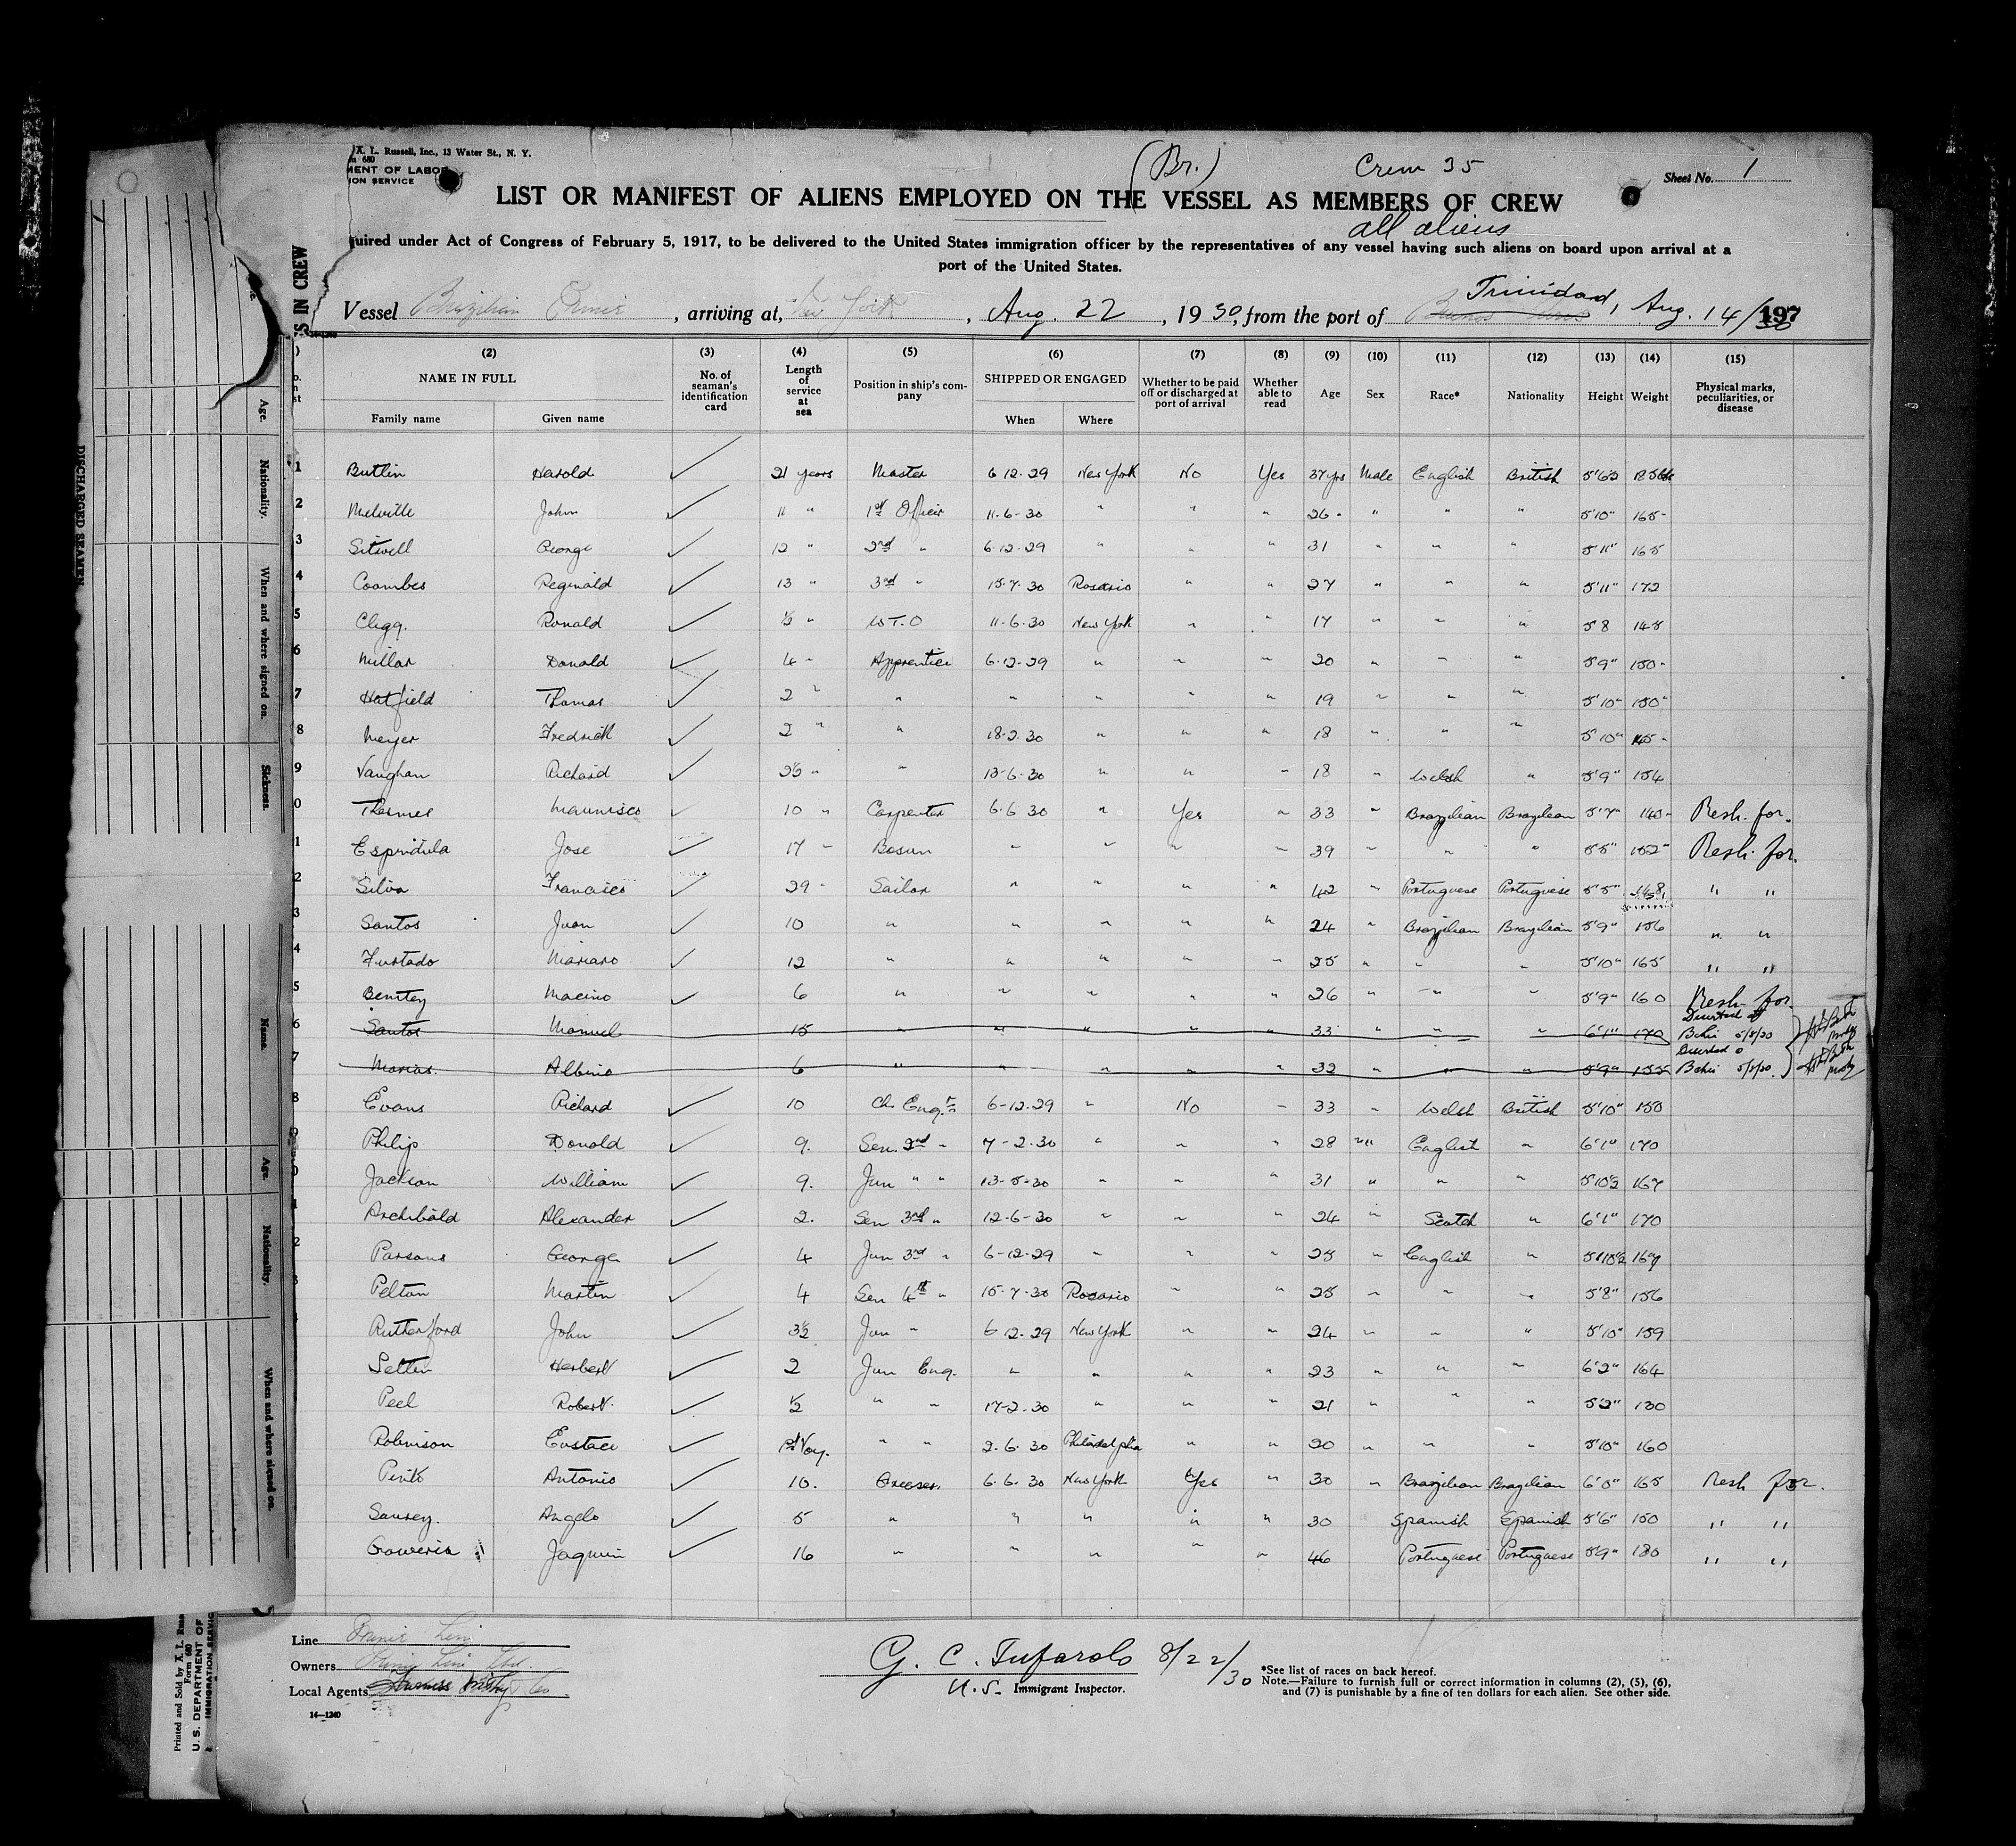 A. L. Russell, Inc., 13 Water St., N. Y.
680
MENT OF LABOR
ION SERVICE
(Br.) Crew 35 Sheet No. 1
LIST OR MANIFEST OF ALIENS EMPLOYED ON THE VESSEL AS MEMBERS OF CREW
all aliens
uired under Act of Congress of February 5, 1917, to be delivered to the United States immigration officer by the representatives of any vessel having such aliens on board upon arrival at a
port of the United States.
Trinidad,
Vessel Brazilian Prince, arriving at, New York, Aug. 22, 1930, from the port of Buenos Aires Aug. 14/30
(2) (3) (4) (5) (6) (7) (8) (9) (10) (11) (12) (13) (14) (15)
NAME IN FULL No. of seaman's identification card Length of service at sea Position in ship's company SHIPPED OR ENGAGED Whether to be paid off or discharged at port of arrival Whether able to read Age Sex Race* Nationality Height Weight Physical marks, peculiarities, or disease
Family name Given name When Where
1 Butlin Harold ✓ 21 years Master 6 12.29 New York No Yes 37 yrs Male English British
2 Melville John ✓ 11 " 1st Officer 11-6-30 " " " 26 " " " 5'10" 165
3 Sitwell George ✓ 12 " 2nd " 6.12.29 " " " 31 " " " 5'11" 165
4 Coombes Reginald ✓ 13 " 3rd " 15.7.30 Rosario " " 27 " " " 5'11" 172
5 Clegg. Ronald ✓ ½ " W.T.O 11.6.30 New York " " 17 " " " 5 8 145
6 Millar Donald ✓ 4 " Apprentice 6.12.29 " " " 20 " " " 5'9" 150
7 Hatfield Thomas ✓ 2 " " " " " " 19 " " " 5'10" 150
8 Meyer Fredrick ✓ 2 " " 18.2.30 " " " 18 " " " 5'10" 145
9 Vaughan Richard ✓ 2½ " " 13-6-30 " " " 18 " Welsh " 5'9" 154
0 Maurisco ✓ 10 " Carpenter 6.6 30 " Yes " 33 " Brazilian Brazilian 5'7" 140 Resh. for.
1 Espridula Jose ✓ 17 " Bosun " " " " 39 " " " 5'5" 152 Resh. for.
2 Silva Francisco ✓ 29 " Sailor " " " " 42 " Portuguese Portuguese 5'5" 148 " "
3 Santos Juan ✓ 10 " " " " " 24 " Brazilian Brazilian 5'9" 156 " "
4 Furtado Mariano ✓ 12 " " " " " 25 " " " 5'10" 165 " "
5 Macino ✓ 6 " " " " " 26 " " " 5'9" 160 Resh. for.
6 Santos Manuel 15 " " " " " 33 " " " 6'1" 170 Deserted at
7 Albino 6 " " " " " 32 " " " 5'9" 155 Deserted
8 Evans Richard ✓ 10 Ch. Eng.r 6-12.29 " No " 33 " Welsh British 5'10" 150
Philip Donald ✓ 9. Sen. 2nd " 7-2.30 " " " 28 " English " 6'1" 170
Jackson William ✓ 9. Jun " " 13-5-30 " " " 31 " " " 5'10½ 167
1 Archibald Alexander ✓ 2. Sen 3rd " 12-6-30 " " " 24 " Scotch " 6'1" 170
2 Parsons George ✓ 4 Jun 3rd " 6-12-29 " " " 25 " English " 5'10½ 167
Pelton Martin ✓ 4 Sen 4th " 15-7-30 Rosario " " 25 " " " 5'8" 156
Rutherford John ✓ 3½ Jun " 6 12.29 New York " " 24 " " " 5'10" 159
Herbert ✓ 2 Jun Eng. " " " " 23 " " " 6'2" 164
Peel Robert. ✓ ½ " " 17-2-30 " " " 21 " " " 5'2" 130
Robinson Eustace ✓ 1st Voy. " " 2.6.30 Philadelphia " " 20 " " " 5'10" 160
Antonio ✓ 10. Greaser. 6.6.30 New York Yes " 30 " Brazilian Brazilian 6'0" 165 Resh for.
Angelo ✓ 5 " " " " " 30 Spanish Spanish 5'6" 150 " "
Joaquin ✓ 16 " " " " " 46 Portuguese Portuguese 5'9" 180 " "
Line Prince Line
Owners Prince Line Ltd.
Local Agents
14—1240
G. C. Tufarolo 8/22/30
U.S. Immigrant Inspector.
*See list of races on back hereof.
Note.—Failure to furnish full or correct information in columns (2), (5), (6),
and (7) is punishable by a fine of ten dollars for each alien. See other side.
S IN CREW
DISCHARGED SEAMEN
Age.
Nationality.
When and where signed on.
Sickness.
Name.
Age.
Nationality.
When and where signed on.
Printed and Sold by A. L. Russ
Form 680
U. S. DEPARTMENT OF
IMMIGRATION SERVIC